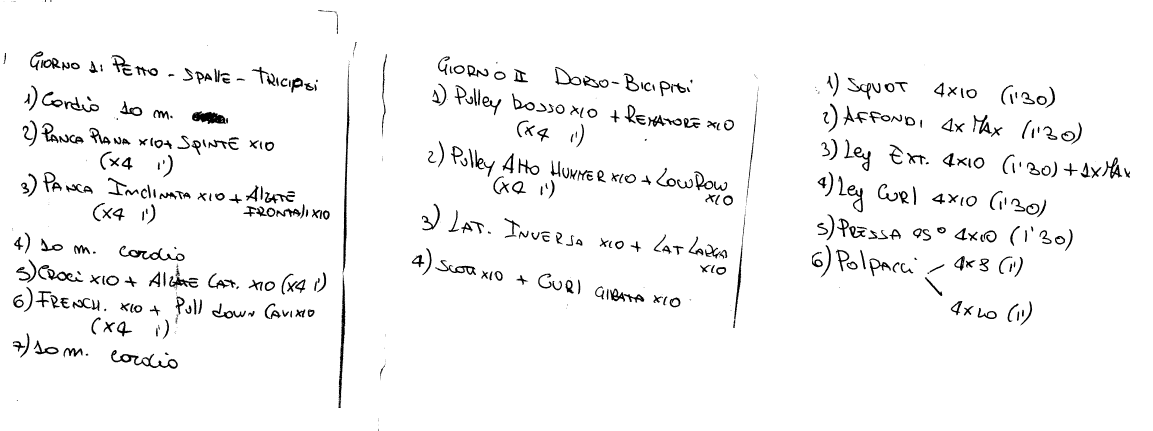 GIORNO DI PETTO - SPALLE - TRICIPITI
1) Cardio 10 m.
2) PANCA PIANA x10+ SPINTE x10
(x4 1')
3) PANCA INCLINATA x10 + ALZATE
FRONTALI x10
(x4 1')
4) 10 m. cardio
5) CROCI x10 + ALZATE LAT. x10 (x4 1')
6) FRENCH. x10 + Pull down CAVI x10
(x4 1')
7) 10 m. cardio
GIORNO II DORSO-BICIPITI
1) Pulley basso x10 + REMATORE x10
(x4 1')
2) Pulley Alto HUMMER x10 + LOW ROW
x10
(x4 1')
3) LAT. INVERSA x10 + LAT LARGA
x10
4) Scott x10 + CURL GIRATA x10
1) SQUOT 4x10 (1'30)
2) AFFONDI 4x MAX (1'30)
3) Leg EXT. 4x10 (1'30) + 1x MAX
4) Leg CURl 4x10 (1'30)
5) PRESSA 45° 4x10 (1'30)
6) Polpacci 4x8 (1')
4x20 (1')